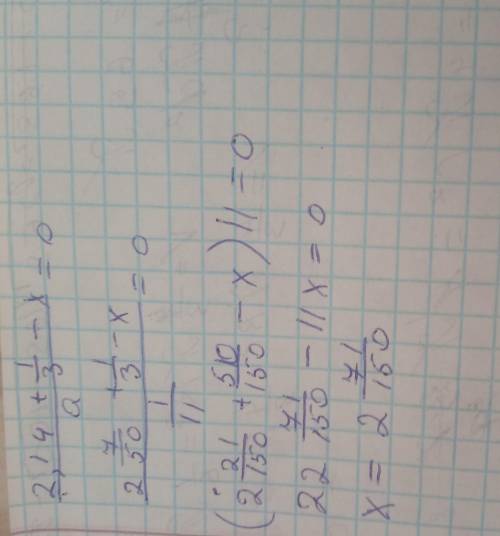 (2,14 + 1/3 - x)/a = 0
(2 7/50 + 1/3 - x)/(1/11) = 0
(2 21/150 + 50/150 - x) 11 = 0
22 71/150 - 11x = 0
x = 2 71/150